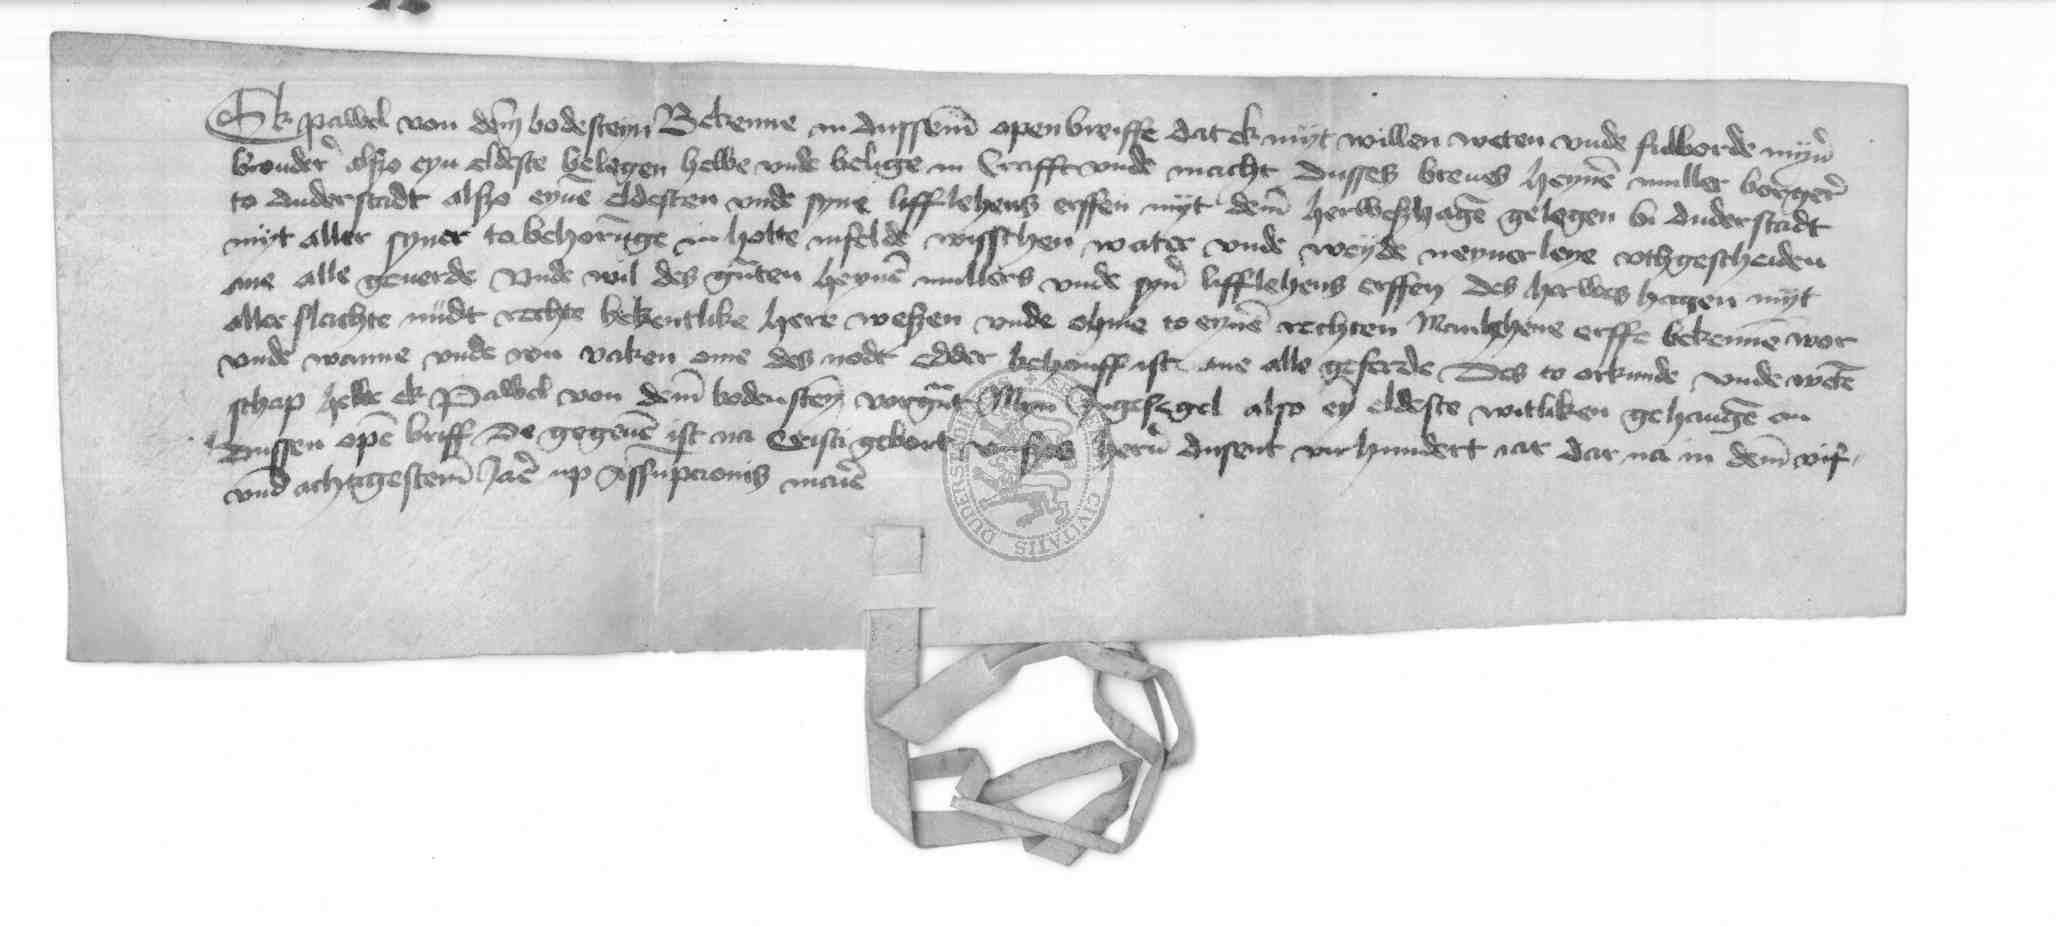 Ek pawel von dem̄ bodesteyn Bekenne in dussem̄ open breiffe dat ek myt willen weten vnde fulborde myn̄
broder̄ alszo eyn eldeste belegen hebbe vnde belige in Crafft vnde macht dusses breues heynen̄ muller borger̄
to duderstadt alszo eynē eldesten vnde syne lifflehens erffen myt dem̄ herweszhagen̄ gelegen bi duderstadt
myt aller syner tobehoringe in holte infelde wysschen water vnde weyde neynerleye vthgescheiden
ane alle geuerde vnde wil des guten heynen̄ mullers vnde syn̄ lifflehens erffen des herwes hagen myt
aller slachte nudt rechte bekentlike here weszen vnde ohme to eynē rechten Manlehene erffe bekennen̄ wor
vnde wanne vnde wu vaken ome des nodt edder behouff ist ane alle geferde Des to orkunde vnde weten̄
schap hebbe ek Pawel von dem̄ bodensteyn̄ vorgn̄t Myn Ingesegel alszo ey eldeste witliken gehangen̄ an
dussen open̄ briff De gegeuen̄ ist na Cristi gebort vnszes hern̄ dusent vir hundert iar dar na in dem̄ vif
vnd achtigestem̄ Jarē up Assupcionis mariē
DUDERST CIVITATIS